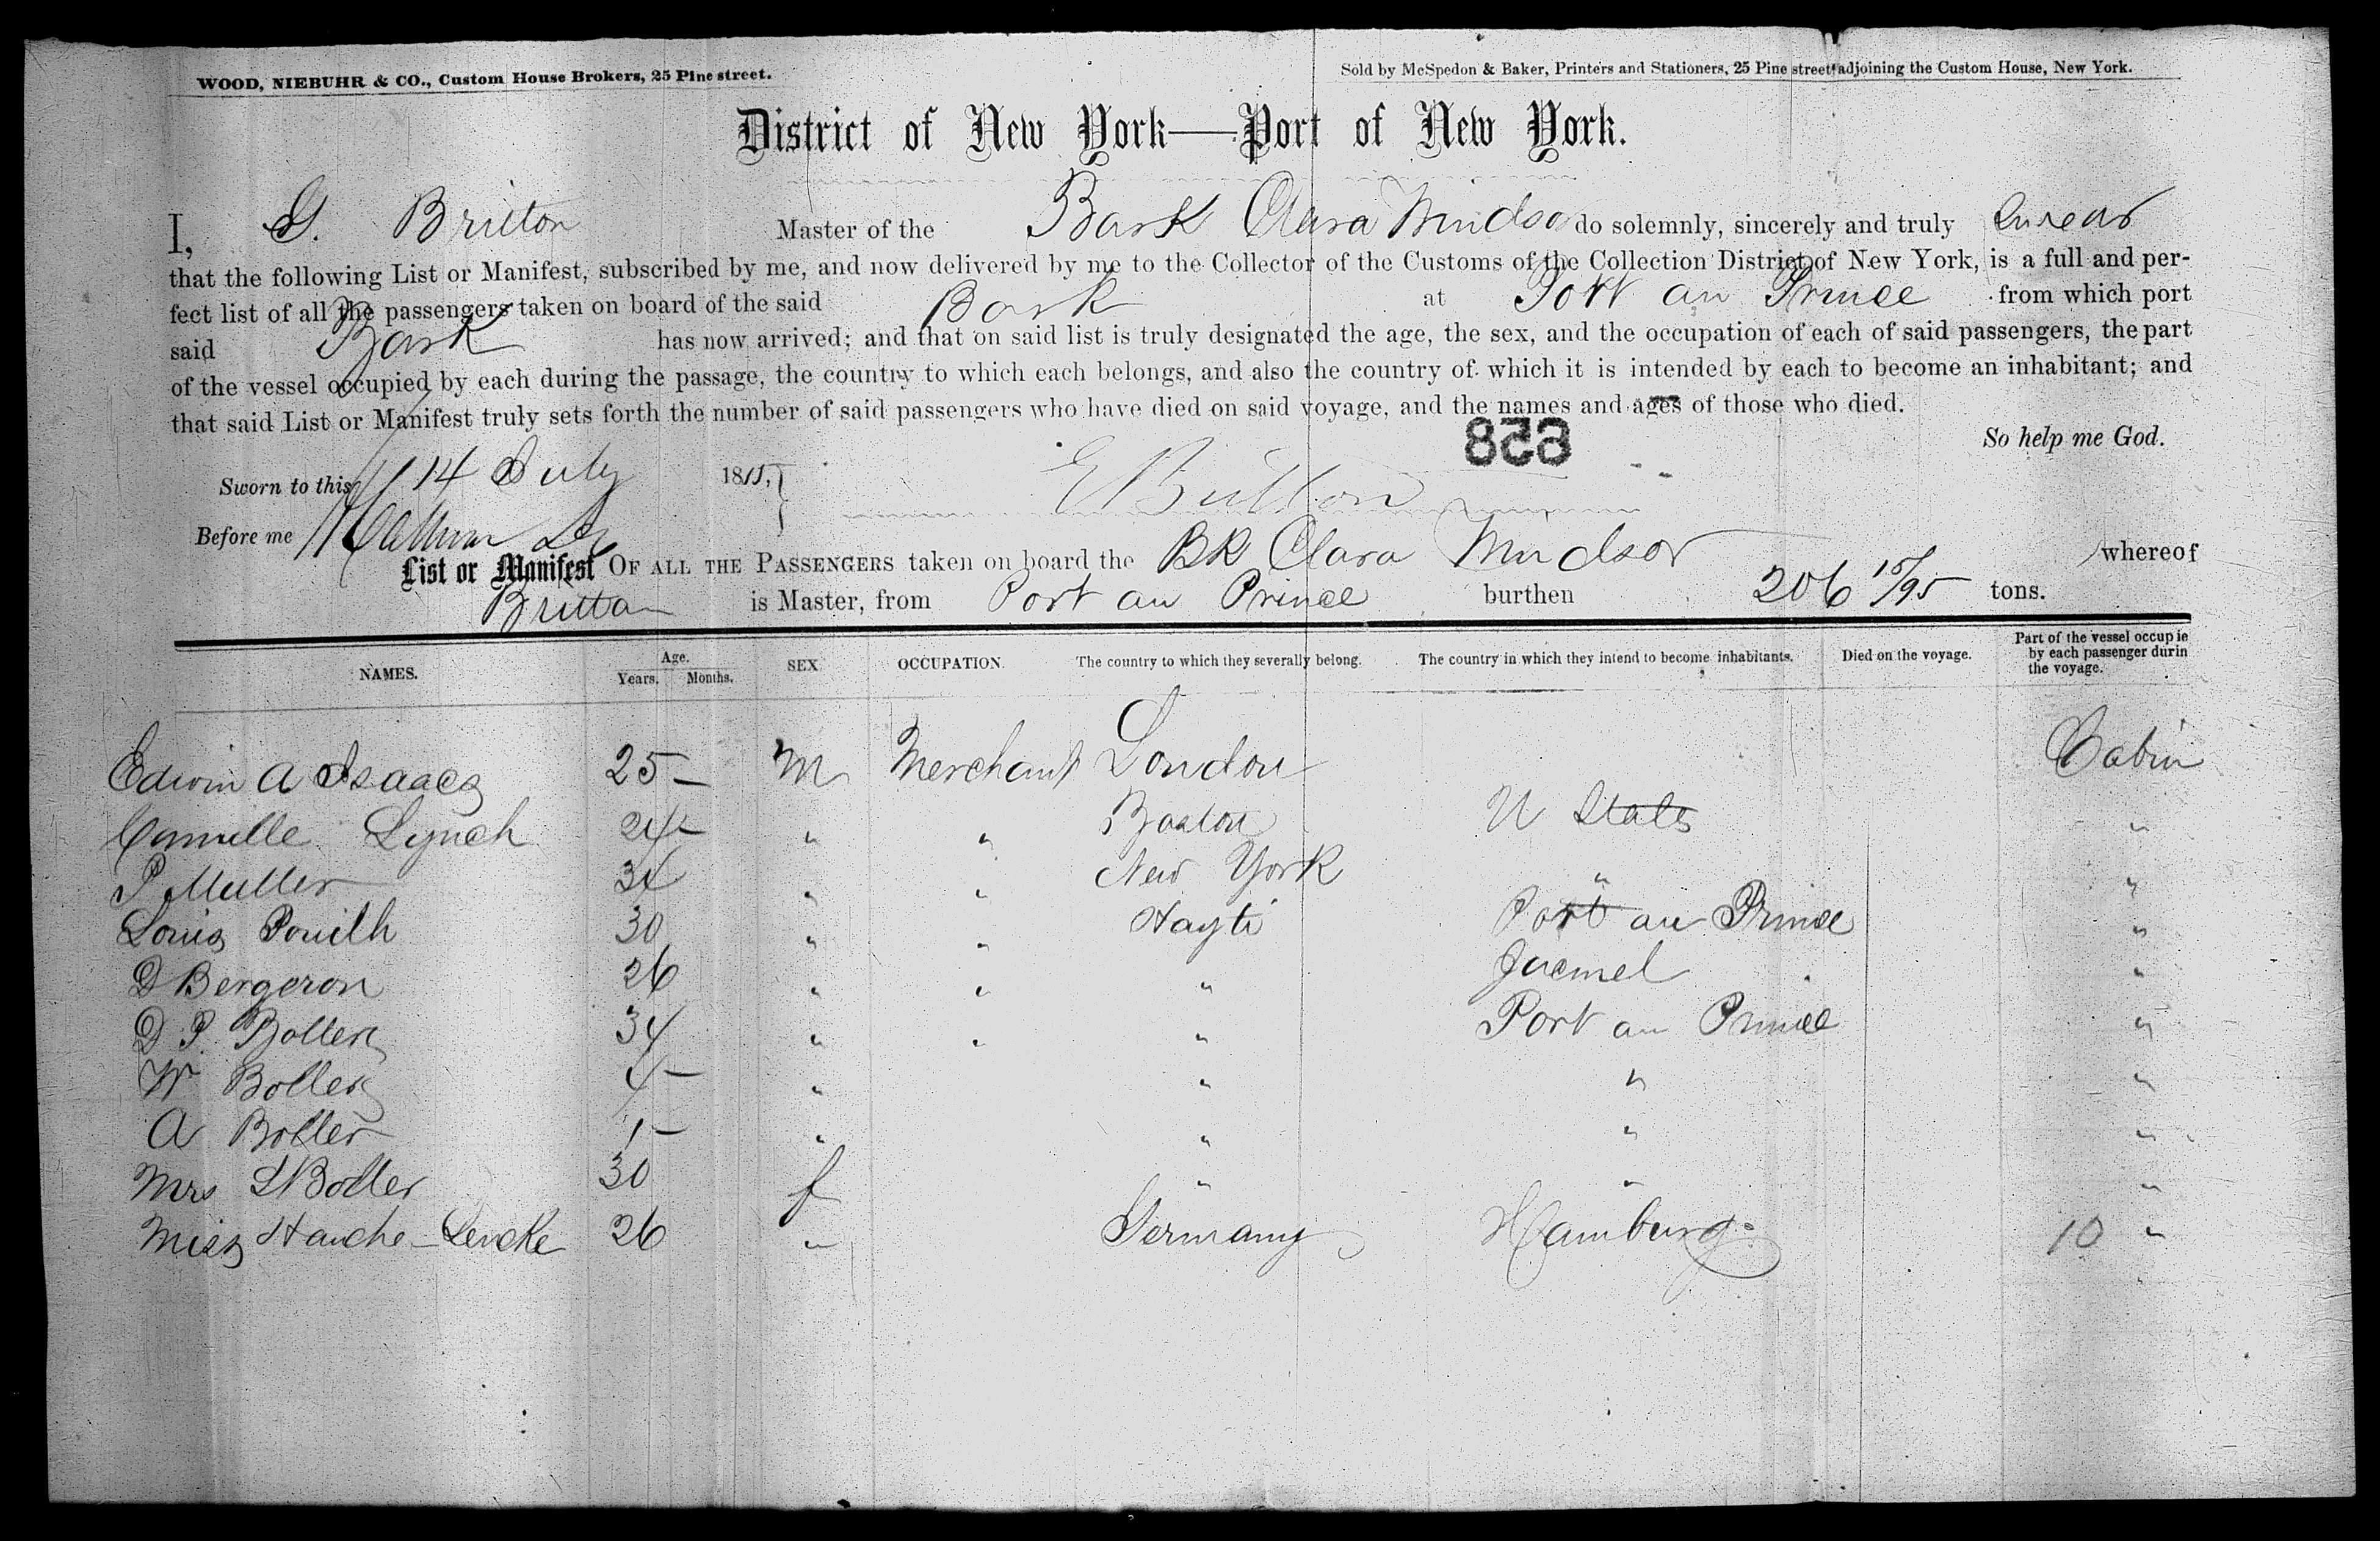 WOOD, NIEBUHR & CO., Custom House Brokers, 25 Pine street.
Sold by McSpedon & Baker, Printers and Stationers, 25 Pine street, adjoining the Custom House, New York.
District of New York—Port of New York.
I, G. Britton Master of the Bark Clara Windsor do solemnly, sincerely and truly swear
that the following List or Manifest, subscribed by me, and now delivered by me to the Collector of the Customs of the Collection District of New York, is a full and per-
fect list of all the passengers taken on board of the said Bark at Port au Prince from which port
said Bark has now arrived; and that on said list is truly designated the age, the sex, and the occupation of each of said passengers, the part
of the vessel occupied by each during the passage, the country to which each belongs, and also the country of which it is intended by each to become an inhabitant; and
that said List or Manifest truly sets forth the number of said passengers who have died on said voyage, and the names and ages of those who died.
858
So help me God.
Sworn to this 14 July 18
E Britton
Before me
List or Manifest OF ALL THE PASSENGERS taken on board the BK Clara Windsor whereof
Britton is Master, from Port au Prince burthen 206 15/95 tons.
NAMES. Age. Years. Months. SEX OCCUPATION. The country to which they severally belong. The country in which they intend to become inhabitants. Died on the voyage. Part of the vessel occupie by each passenger durin the voyage.
Edwin A Isaacs 25 – M Merchant London Cabin
Camille Lynch 24 – " " Boston U States "
P Muller 34 " " New York " "
Louis 30 " " Hayti Port au Prince "
D Bergeron 26 " " " Jacmel "
D P. Boller 34 " " " Port au Prince "
W Boller 4 – " " " "
A Boller 1 – " " " "
Mrs L Boller 30 f " " "
Miss 26 " Germany Hamburg 10 "